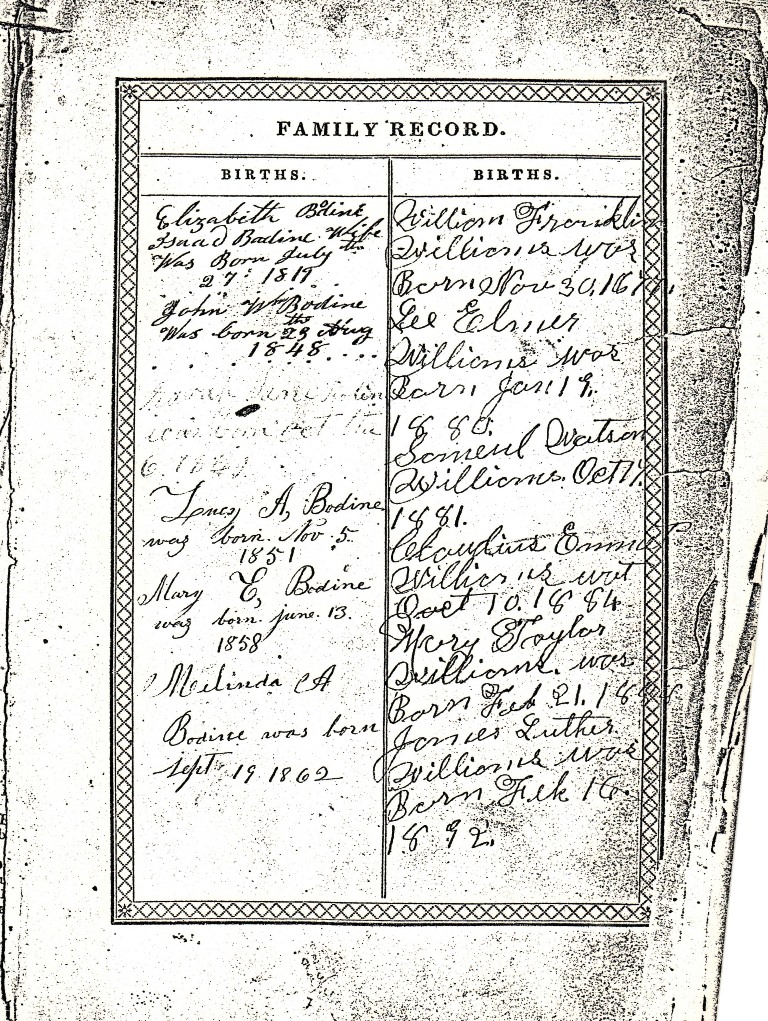 FAMILY RECORD.
BIRTHS.
Elizabeth Bodine
Isaac Bodine Wife
Was Born July the
27: 1819
John Wm Bodine
Was born 23 ths Aug
1848
Jane
was born oct the
6 184
A, Bodine
was born. Nov. 5.
1851
Mary E, Bodine
was born. june. 13.
1858
Melinda A
Bodine was born
Sept 19 1862
BIRTHS.
William Franklin
Williams was
Born Nov 30, 187
Lee Elmer
Williams was
Born Jan 19.
1880.
Watson
Williams. Oct 17.
1881.
Williams
Oct 10. 1884
Mary Taylor
Williams. was
Born Feb 21. 18
James Luther
Williams was
Born Feb 16.
1892.